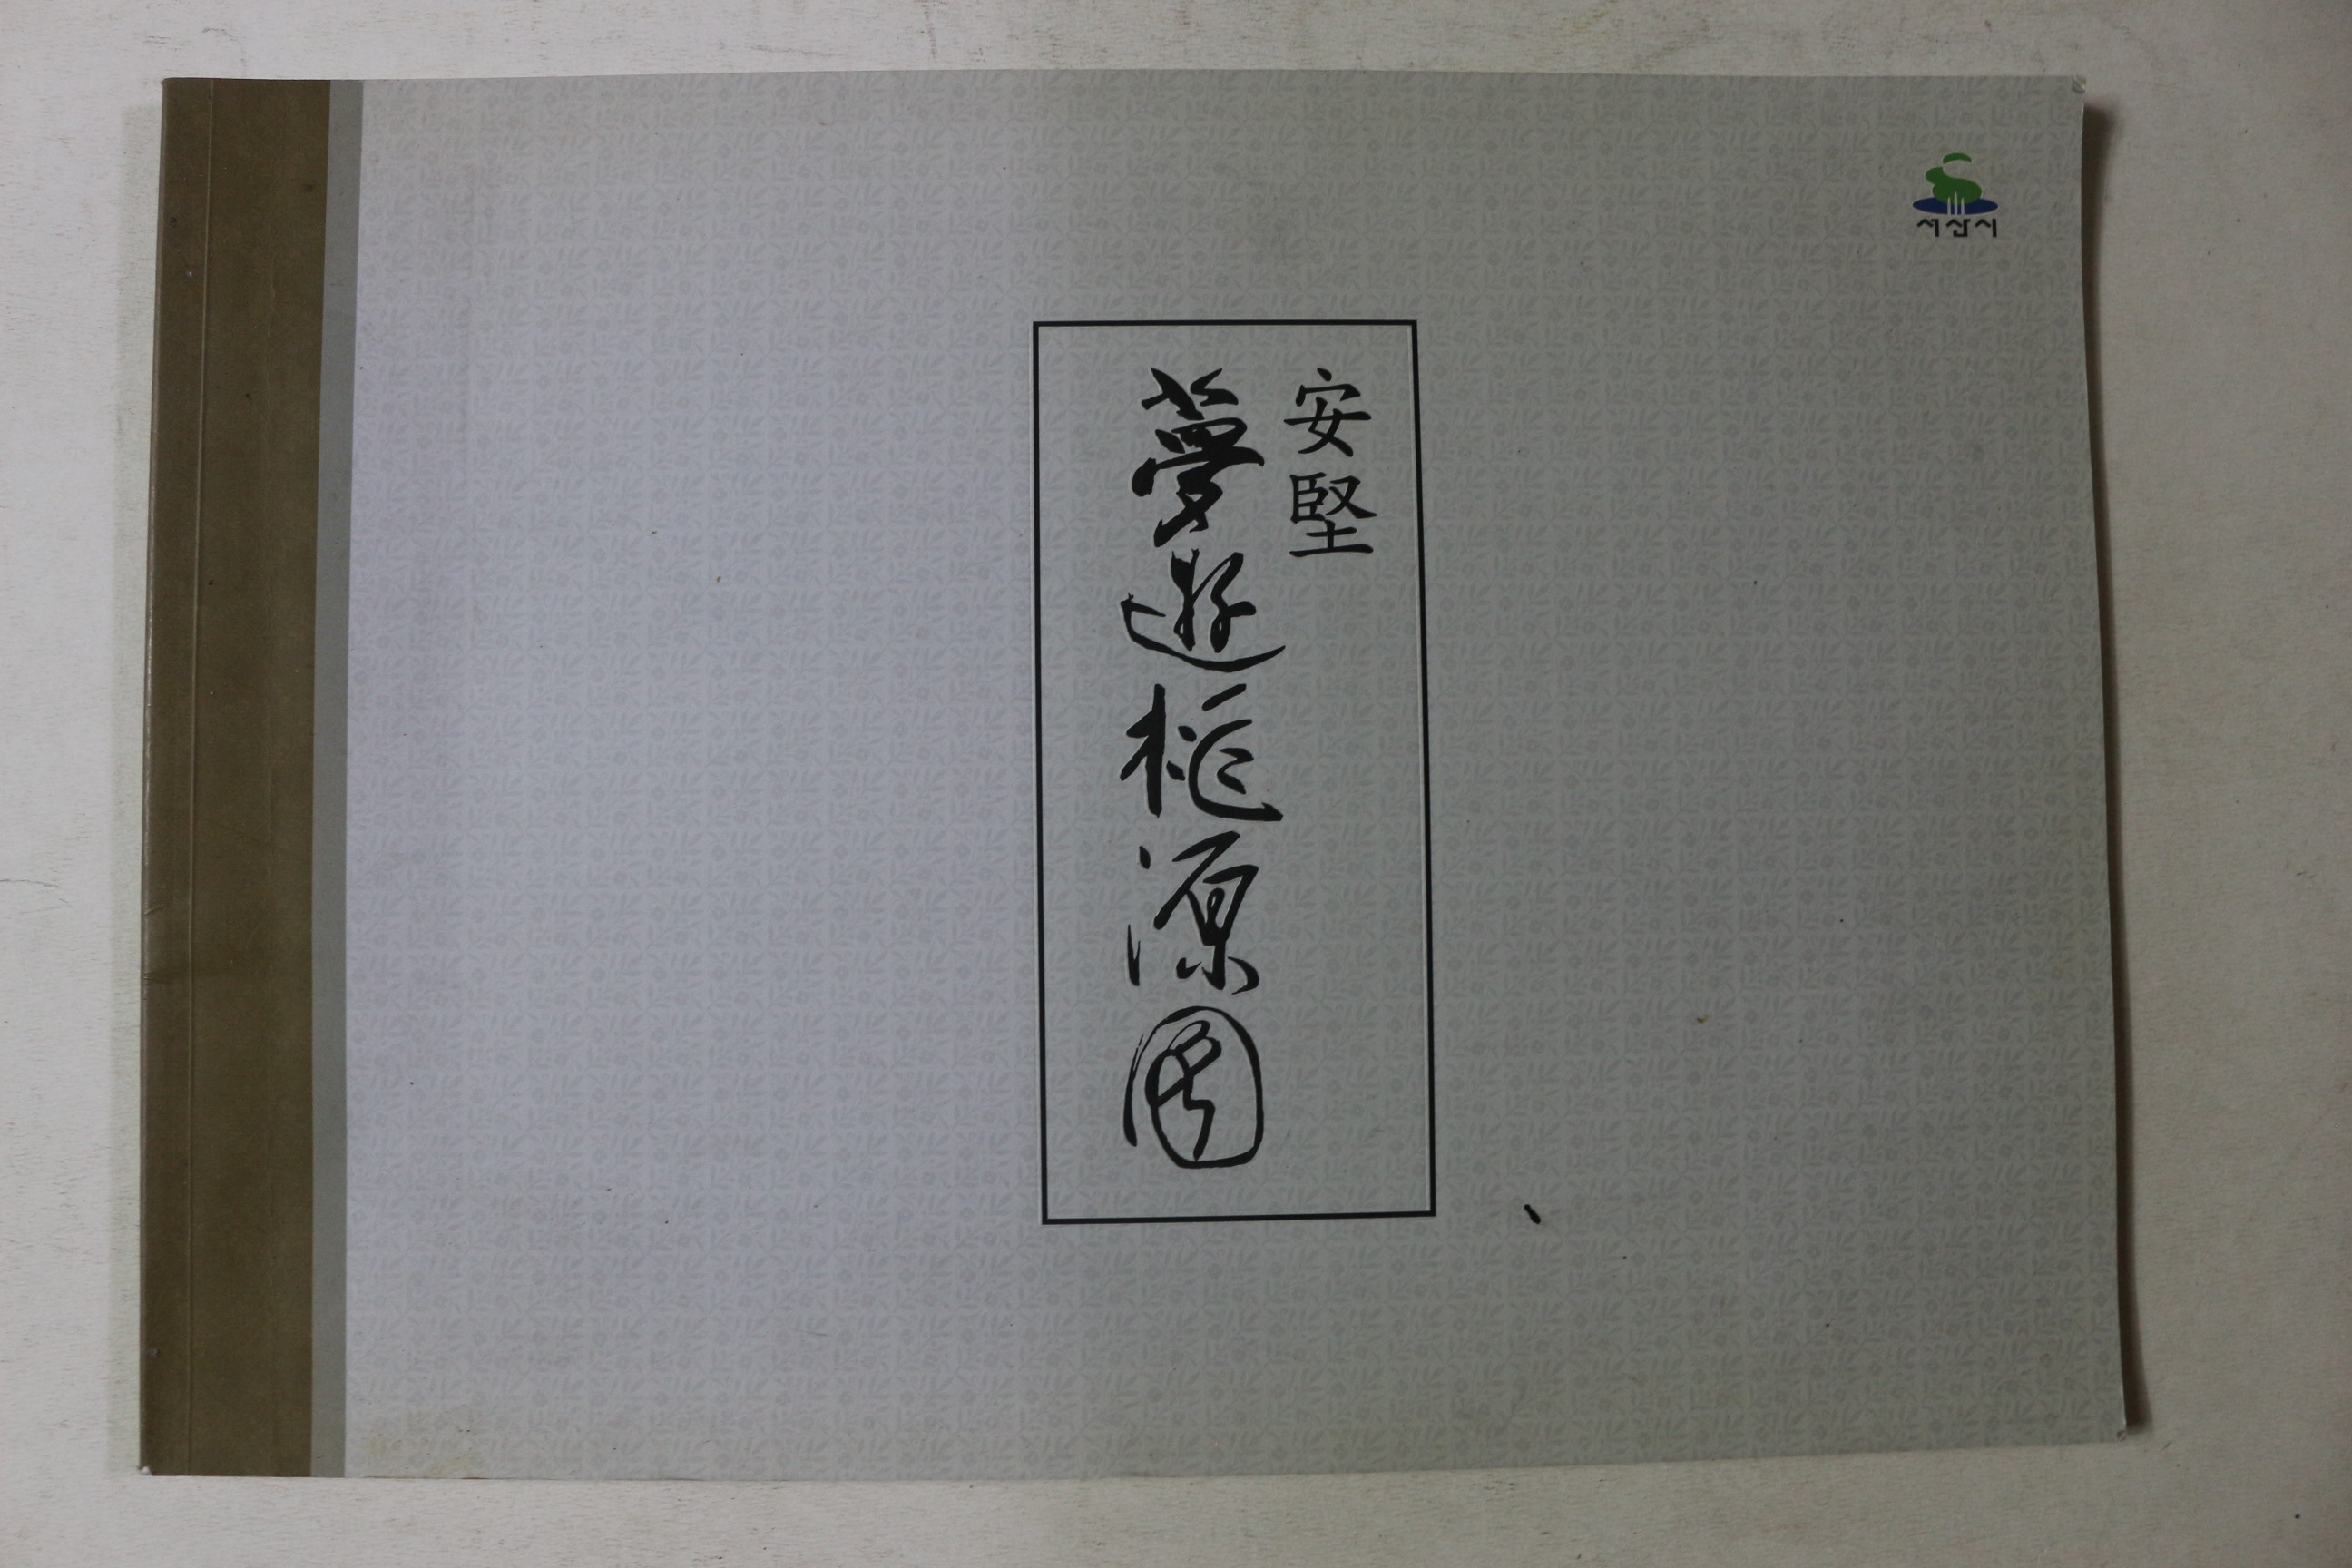 安堅
夢遊桃源圖
서산시